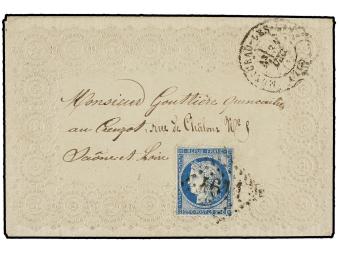 Monsieur Gouttière Quincailler
au Creuzot, rue de Châlon Nº 8
Saône et Loire
REPUB. FRANC.
25 C. POSTES 25 C.